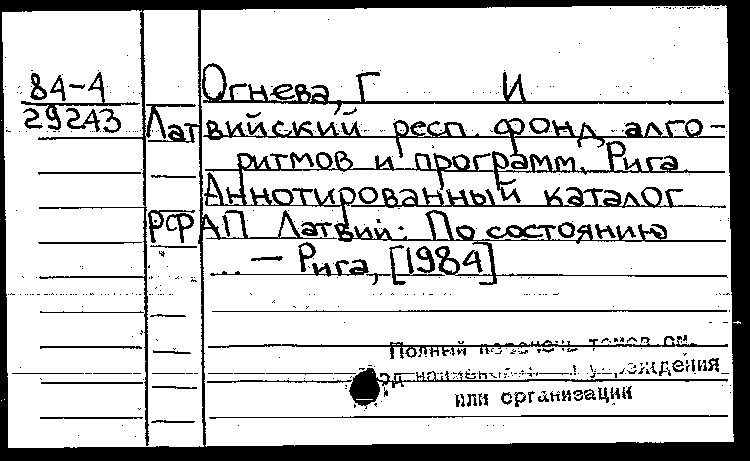 84-4
29243
Огнева, Г И
Латвийский респ. фонд алго-
ритмов и программ. Рига
Аннотированный каталог
РФАП Латвии: По состоянию
... — Рига, [1984]
Полный перечень томов см.
под наименован. учреждения
или организации